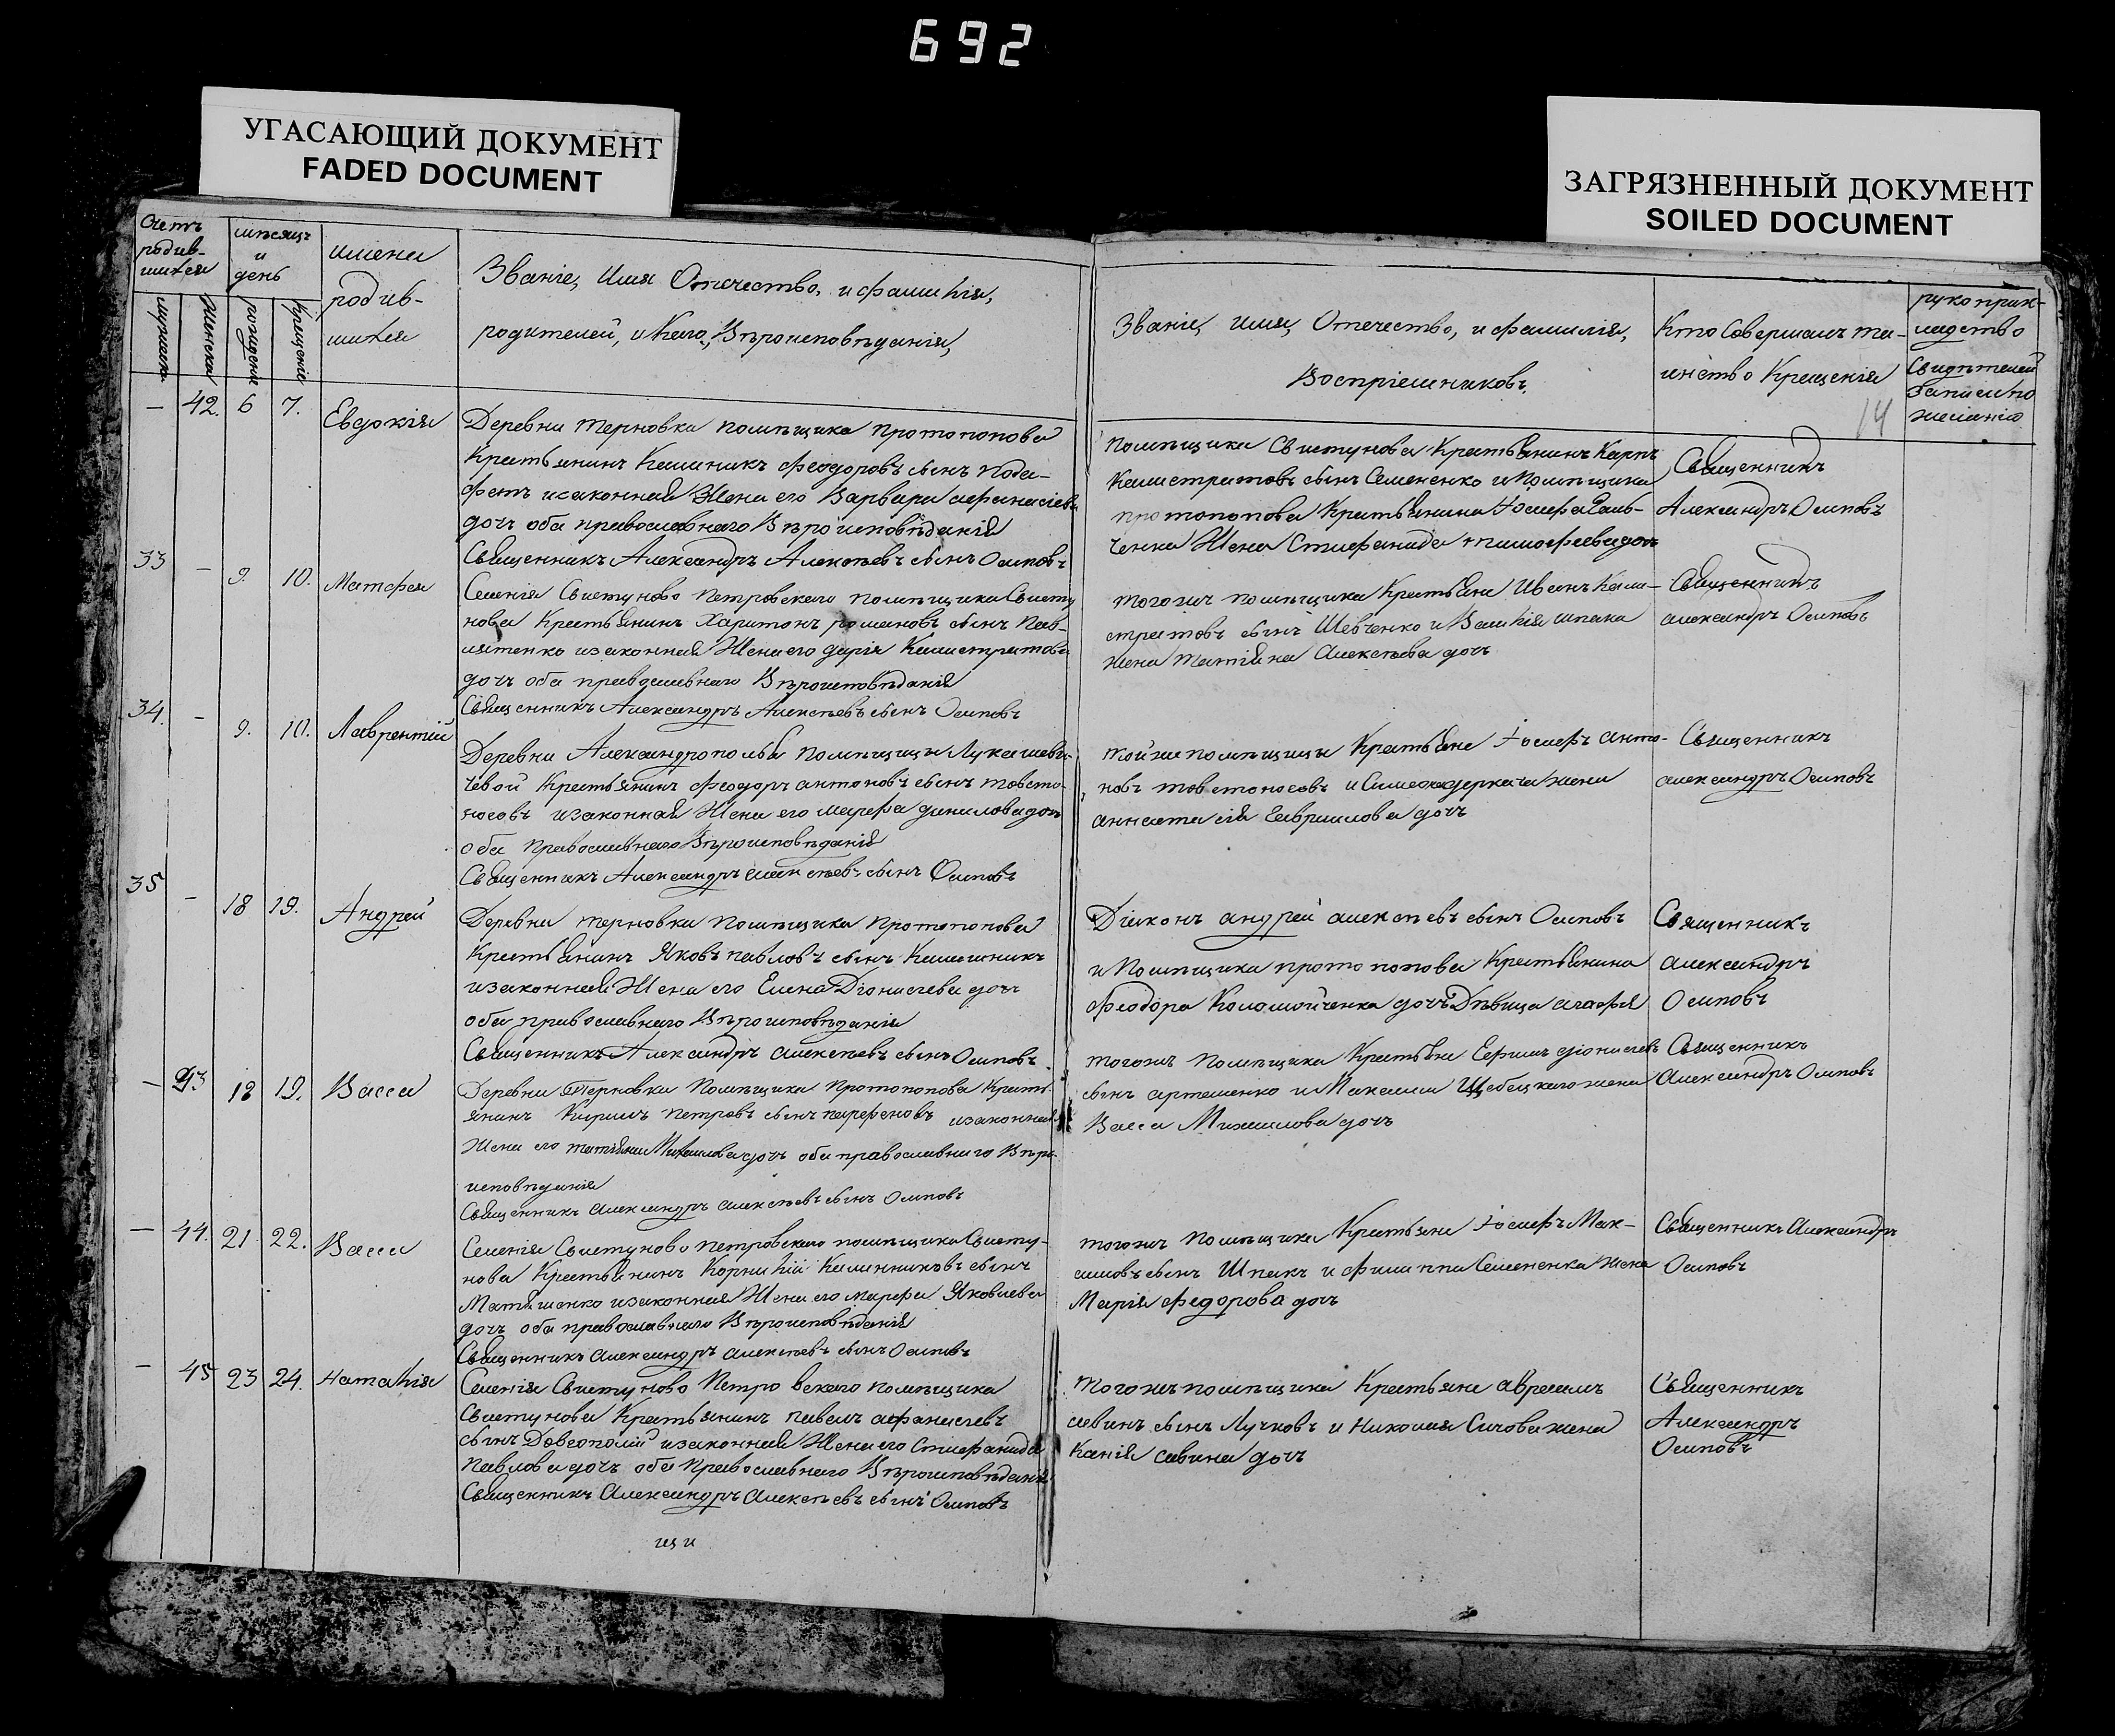 692
УГАСАЮЩИЙ ДОКУМЕНТ
FADED DOCUMENT
ЗАГРЯЗНЕННЫЙ ДОКУМЕНТ
SOILED DOCUMENT
Счетъ родив-шихся
мѣсяцъ и день
имена родив-шихся
Званіе, Имя Отечество, и фамилія,
родителей, и Каго, Вѣроисповѣданія,
Званіе, имя, Отечество, и фамилія,
Воспріемниковъ,
Кто Совершалъ Та-
инство Крещенія
рукоприк-
ладство
Свидѣтелей
записи по
желанію
мужеска
женска
рожденіе
крещеніе
14
— 42. 6 7. Евдокія
Деревни терновки помѣщика протопопова
Крестьянинъ Калиникъ Феодоровъ сынъ
и законная Жена его Варвара афанасіева
дочь оба православнаго Вѣроисповѣданія
Священникъ Александръ Алексѣевъ сынъ Осиповъ
помѣщика Свистунова Крестьянинъ Карпъ
Калистратовъ сынъ Семененко и Помѣщика
протопопова Крестьянина Іосифа
ченка Жена Стефанида тимофеева дочь
Священникъ
Александръ Осиповъ
33 — 9. 10. Матфей
Селенія Свистуново Петровскаго помѣщика Свисту
нова Крестьянинъ Харитонъ романовъ сынъ Пав-
лятенко и законная Жена его дарія Калистратова
дочь оба православнаго Вѣроисповѣданія
Священникъ Александръ Алексѣевъ сынъ Осиповъ
тогожъ помѣщика Крестьяне Иванъ Кали-
стратовъ сынъ Шевченко и Василія шпака
жена татіяна Алексѣева дочь
Священникъ
александръ Осиповъ
34. — 9. 10. Лаврентій
Деревни Александрополья помѣщицы Лукашеви-
чевой Крестьянинъ Феодоръ антоновъ сынъ товсто-
носовъ и законная Жена его марфа данилова дочь
оба православнаго Вѣроисповѣданія
Священникъ Александръ алексѣевъ сынъ Осиповъ
тойже помѣщицы Крестьяне Іосифъ анто-
новъ товстоносовъ и Симеона деркача жена
аннастасія Гавриилова дочь
Священникъ
александръ Осиповъ
35 — 18 19. Андрей
Деревни терновки помѣщика Протопопова
Крестьянинъ Яковъ павловъ сынъ
и законная Жена его Елена Діонисіева дочь
оба православнаго Вѣроисповѣданія
Священникъ Александръ алексѣевъ сынъ Осиповъ
Діяконъ андрей алексѣевъ сынъ Осиповъ
и Помѣщика протопопова Крестьянина
Феодора Коломойченка дочь Дѣвица агафія
Священникъ
александръ
Осиповъ
— 43 18 19. Васса
Деревни Терновки Помѣщика Протопопова Кресть-
янинъ Кирилъ петровъ сынъ парфеновъ и законная
Жена его татіяна Михаилова дочь оба православнаго Вѣро-
исповѣданія
Священникъ александръ алексѣевъ сынъ Осиповъ
тогожъ помѣщика Крестьяне Ефимъ діонисіевъ
сынъ артеменко и Максима Щебецкаго жена
Васса Михаилова дочь
Священникъ
Александръ Осиповъ
— 44. 21. 22. Васса
Селенія Свистуново петровскаго помѣщика Свисту-
нова Крестьянинъ Корнилій Калинниковъ сынъ
Матяшенко и законная Жена его марфа Яковлева
дочь оба православнаго Вѣроисповѣданія
Священникъ александръ алексѣевъ сынъ Осиповъ
тогожъ помѣщика Крестьяне Іосифъ Мак-
симовъ сынъ Шпакъ и филиппа Семененка жена
Марія Федорова дочь
Священникъ Александръ
Осиповъ
— 45 23 24. Наталія
Селенія Свистуново Петровскаго помѣщика
Свистунова Крестьянинъ павелъ афанасіевъ
сынъ Довгополій и законная Жена его Стефанида
Павлова дочь оба Православнаго Вѣроисповѣданія
Священникъ Александръ Алексѣевъ сынъ Осиповъ
тогожъ помѣщика Крестьяне авраамъ
савинъ сынъ Лучковъ и Николая Сичова жена
Ксенія савина дочь
Священникъ
Александръ
Осиповъ